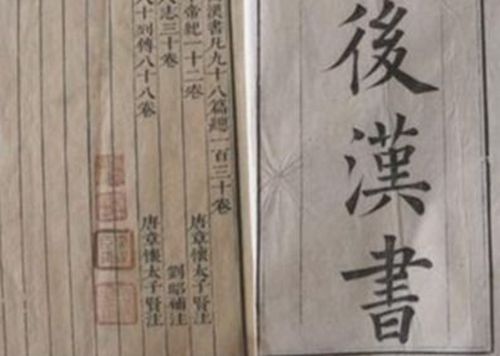 後漢書
漢書凡九十八篇總一百三十卷
帝紀一十二卷 唐章懷太子賢注
志三十卷 劉昭補注
十列傳八十八卷 唐章懷太子賢注